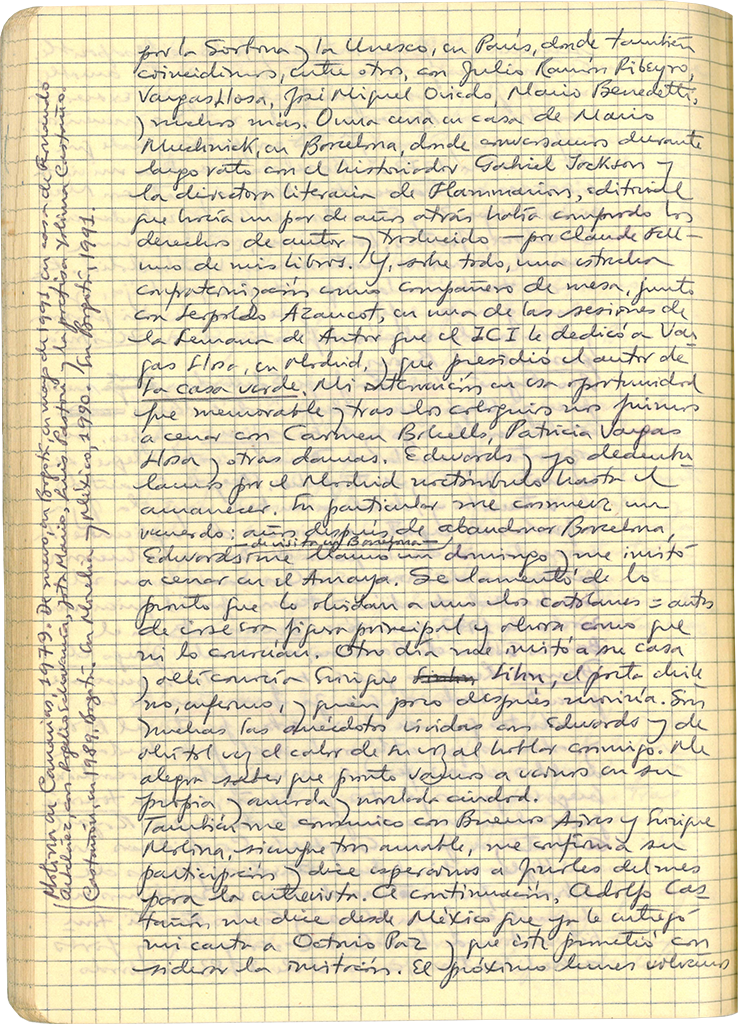 por la Sorbona y la Unesco, en París, donde también
coincidimos, entre otros, con Julio Ramón Ribeyro,
Vargas Llosa, José Miguel Oviedo, Mario Benedetti,
y muchos más. O una cena en casa de Mario
Muchnick, en Barcelona, donde conversamos durante
largo rato con el historiador Gabriel Jackson y
la directora literaria de Flammarion, editorial
que hacía un par de años atrás había comprado los
derechos de autor y traducido —por Claude Fell—
uno de mis libros. Y, sobre todo, una estrecha
confraternización como compañero de mesa, junto
con Leopoldo Azancot, en una de las sesiones de
la Semana de Autor que el ICI le dedicó a Var-
gas Llosa, en Madrid, y que presidió el autor de
La casa verde. Mi intervención en esa oportunidad
fue memorable y tras los coloquios nos fuimos
a cenar con Carmen Balcells, Patricia Vargas
Llosa y otras damas. Edwards y yo deambu-
lamos por el Madrid noctámbulo hasta el
amanecer. En particular me conmueve un
recuerdo: años después de abandonar Barcelona,
de visita en Barcelona
Edwards me llamó un domingo y me invitó
a cenar en el Amaya. Se lamentó de lo
pronto que lo olvidan a uno los catalanes = antes
de irse era figura principal y ahora como que
ni lo conocían. Otro día me invitó a su casa
y allí conocía Enrique Lihn, el poeta chile
no, enfermo, y quien poco después moriría. Son
muchas las anécdotas vividas con Edwards y de
ahí tal vez el calor de su voz al hablar conmigo. Me
alegra saber que pronto vamos a vernos en su
propia y amada y nombrada ciudad.
También me comunico con Buenos Aires y Enrique
Molina, siempre tan amable, me confirma su
participación y dice esperarnos a finales del mes
para la entrevista. A continuación, Adolfo Cas-
tañón me dice desde México que ya le entregó
mi carta a Octavio Paz y que éste prometió con
siderar la invitación. El próximo lunes volvemos
Molina en Canarias, 1979. De nuevo, en Bogotá, en mayo de 1991, en casa de Fernando
con Rogelio Jota Mario, Luis Pastori y la profesora Yolima
Castañón, en 1989, Bogotá. En Morelia y México, 1990. En Bogotá, 1991.